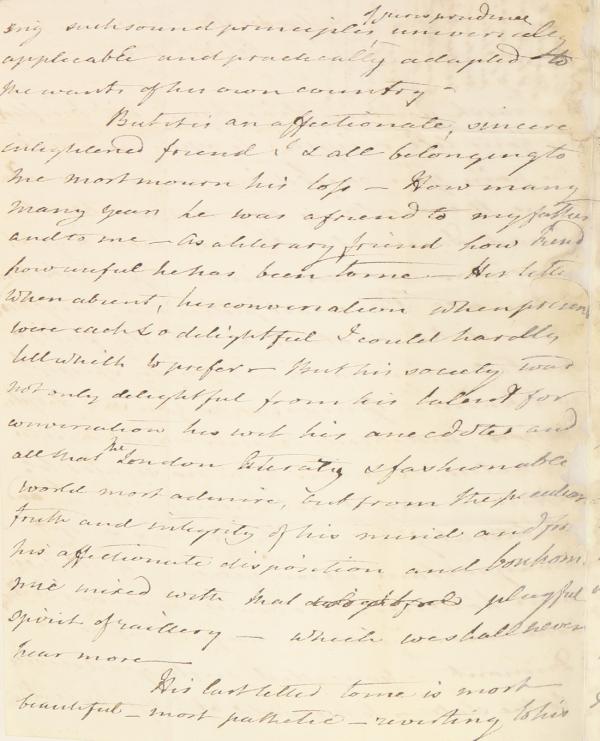 ing such sound principles jurisprudence universally
applicable and practically adapted to
the wants of his own country -
But it is an affectionate, sincere
enlightened friend I & all belonging to
me most mourn his loss - How many
many years he was a friend to my father
and to me - As a literary friend how kind
how useful he has been to me - His letters
when absent, his conversation when present
were each so delightful I could hardly
tell which to prefer - But his society was
not only delightful from his talent for
conversation his wit his anecdotes and
all that the London literary & fashionable
world most admire, but from the peculiar
truth and integrity of his mind and for
his affectionate disposition and bonhom-
mie mixed with that playful
spirit of raillery - which we shall never
hear more -
His last letter to me is most
beautiful - most pathetic - reverting to his